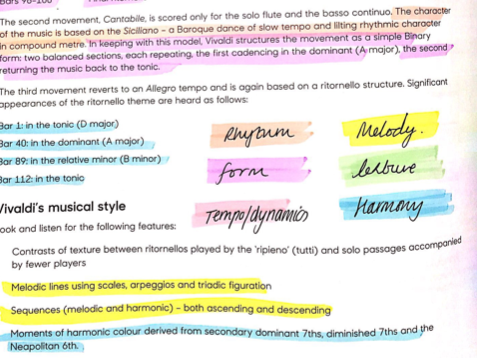 Bars 98-106
The second movement, Cantabile, is scored only for the solo flute and the basso continuo. The character
of the music is based on the Siciliano – a Baroque dance of slow tempo and lilting rhythmic character
in compound metre. In keeping with this model, Vivaldi structures the movement as a simple Binary
form: two balanced sections, each repeating, the first cadencing in the dominant (A major), the second
returning the music back to the tonic.
The third movement reverts to an Allegro tempo and is again based on a ritornello structure. Significant
appearances of the ritornello theme are heard as follows:
Bar 1: in the tonic (D major)
Bar 40: in the dominant (A major)
Bar 89: in the relative minor (B minor)
Bar 112: in the tonic
Rhythm
Melody.
form
texture
Tempo/dynamics
Harmony
Vivaldi's musical style
ook and listen for the following features:
Contrasts of texture between ritornellos played by the 'ripieno' (tutti) and solo passages accompanied
by fewer players
Melodic lines using scales, arpeggios and triadic figuration
Sequences (melodic and harmonic) – both ascending and descending
Moments of harmonic colour derived from secondary dominant 7ths, diminished 7ths and the
Neapolitan 6th.